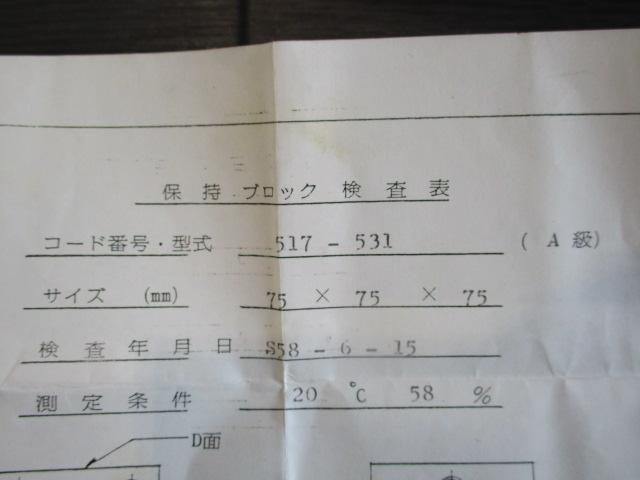 保持ブロック検査表
コード番号・型式 517 - 531 ( A 級)
サイズ (mm) 75 × 75 × 75
検査年月日 S58 - 6 - 15
測定条件 20 ℃ 58 %
D面